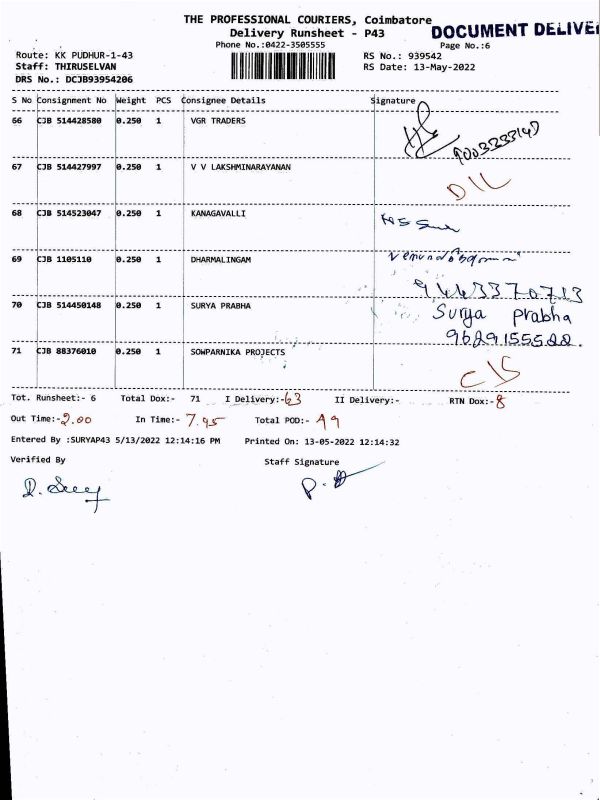 THE PROFESSIONAL COURIERS, Coimbatore
DOCUMENT DELIVE
Delivery Runsheet - P43
Phone No.:0422-3505555
Page No.:6
Route: KK PUDHUR-1-43
RS No.: 939542
Staff: THIRUSELVAN
RS Date: 13-May-2022
DRS No.: DCJB93954206
S No Consignment No Weight PCS Consignee Details Signature
66 CJB 514428580 0.250 1 VGR TRADERS
67 CJB 514427997 0.250 1 V V LAKSHMINARAYANAN
D/L
68 CJB 514523047 0.250 1 KANAGAVALLI
69 CJB 1105110 0.250 1 DHARMALINGAM
9443370713
70 CJB 514450148 0.250 1 SURYA PRABHA Surya Prabha
9629155520.
71 CJB 88376010 0.250 1 SOWPARNIKA PROJECTS
C/S
Tot. Runsheet:- 6 Total Dox:- 71 I Delivery:-63 II Delivery:- RTN Dox:-8
Out Time:-2.00 In Time:- 7.45 Total POD:- 49
Entered By :SURYAP43 5/13/2022 12:14:16 PM Printed On: 13-05-2022 12:14:32
Verified By Staff Signature